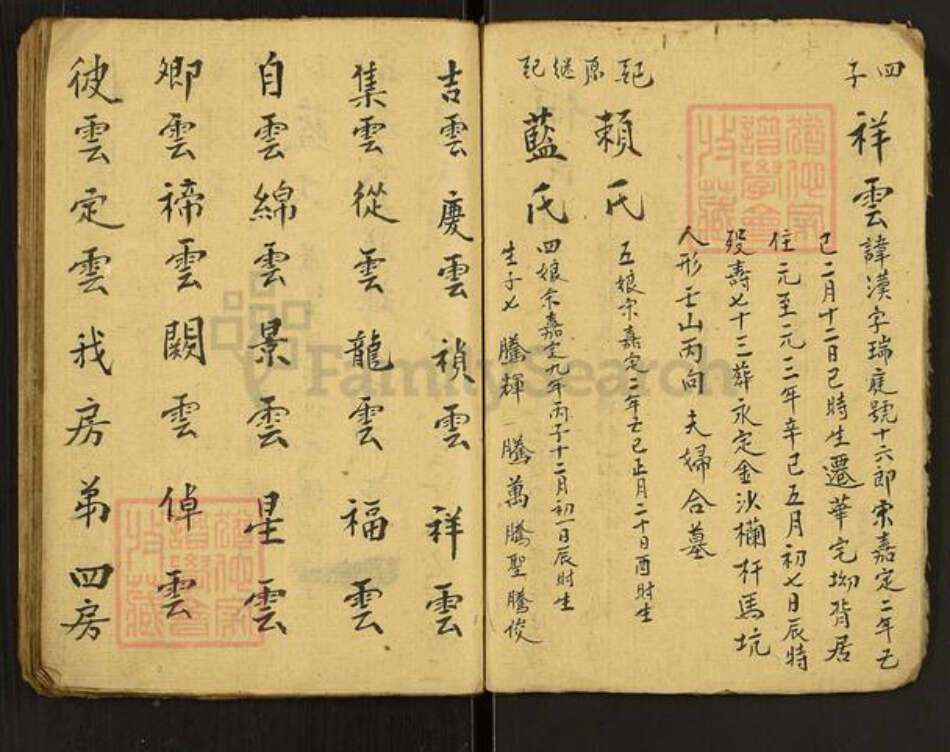 四子 祥雲 諱漢字瑞庭號十六郎宋嘉定二年己
己二月十二日巳時生遷華宅坳背居
住元至元三年辛巳五月初七日辰時
歿壽七十三葬永定金沙欄杆馬坑
人形壬山丙向夫婦合墓
妣原 賴氏 五娘宋嘉定二年己巳正月二十日酉时生
妣继 藍氏 四娘宗嘉定九年丙子十二月初一日辰时生
生子七 騰輝 騰萬騰聖騰俊
吉雲慶雲禎雲祥雲
集雲從雲龍雲福雲
自雲綿雲景雲星雲
卿雲褅雲闕雲倬雲
彼雲定雲我房弟四房
FamilySearch